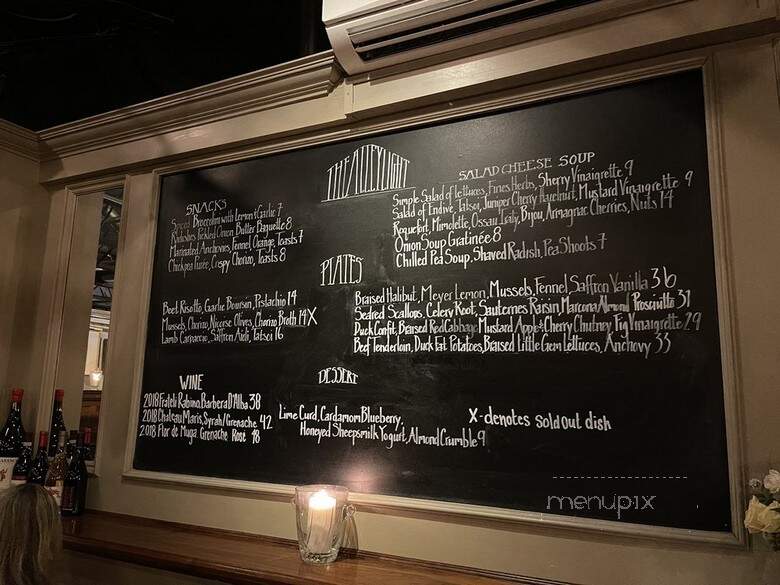 THE ALLEYLIGHT
SNACKS
Spiced Broccolini with Lemon & Garlic 7
Radishes Pickled Onion Butter Baguette 8
Marinated Anchovies, Fennel Orange, Toasts 7
Chickpea Purée, Crispy Chorizo, Toasts 8
SALAD CHEESE SOUP
Simple Salad of Lettuces, Fines Herbs, Sherry Vinaigrette 9
Salad of Endive, Tatsoi, Juniper Cherry Hazelnut, Mustard Vinaigrette 9
Roquefort, Mimolette, Ossau Iraty, Bijou, Armagnac Cherries, Nuts 14
Onion Soup Gratinée 8
Chilled Pea Soup, Shaved Radish, Pea Shoots 7
PLATES
Beet Risotto, Garlic Boursin, Pistachio 14
Mussels, Chorizo, Nicoise Olives, Chorizo Broth 14 X
Lamb Carpaccio, Saffron Aioli, Tatsoi 16
Braised Halibut, Meyer Lemon, Mussels, Fennel, Saffron Vanilla 36
Seared Scallops, Celery Root, Sauternes Raisin, Marcona Almond Prosciutto 31
Duck Confit, Braised Red Cabbage Mustard Apple & Cherry Chutney, Fig Vinaigrette 29
Beef Tenderloin, Duck Fat Potatoes, Braised Little Gem Lettuces, Anchovy 33
WINE
2018 Frateli Rabino, Barbera D'Alba 38
2018 Chateau Maris, Syrah/Grenache 42
2018 Flor de Muga Grenache Rosé 48
DESSERT
Lime Curd, Cardamom Blueberry,
Honeyed Sheepsmilk Yogurt, Almond Crumble 9
X-denotes sold out dish
menupix